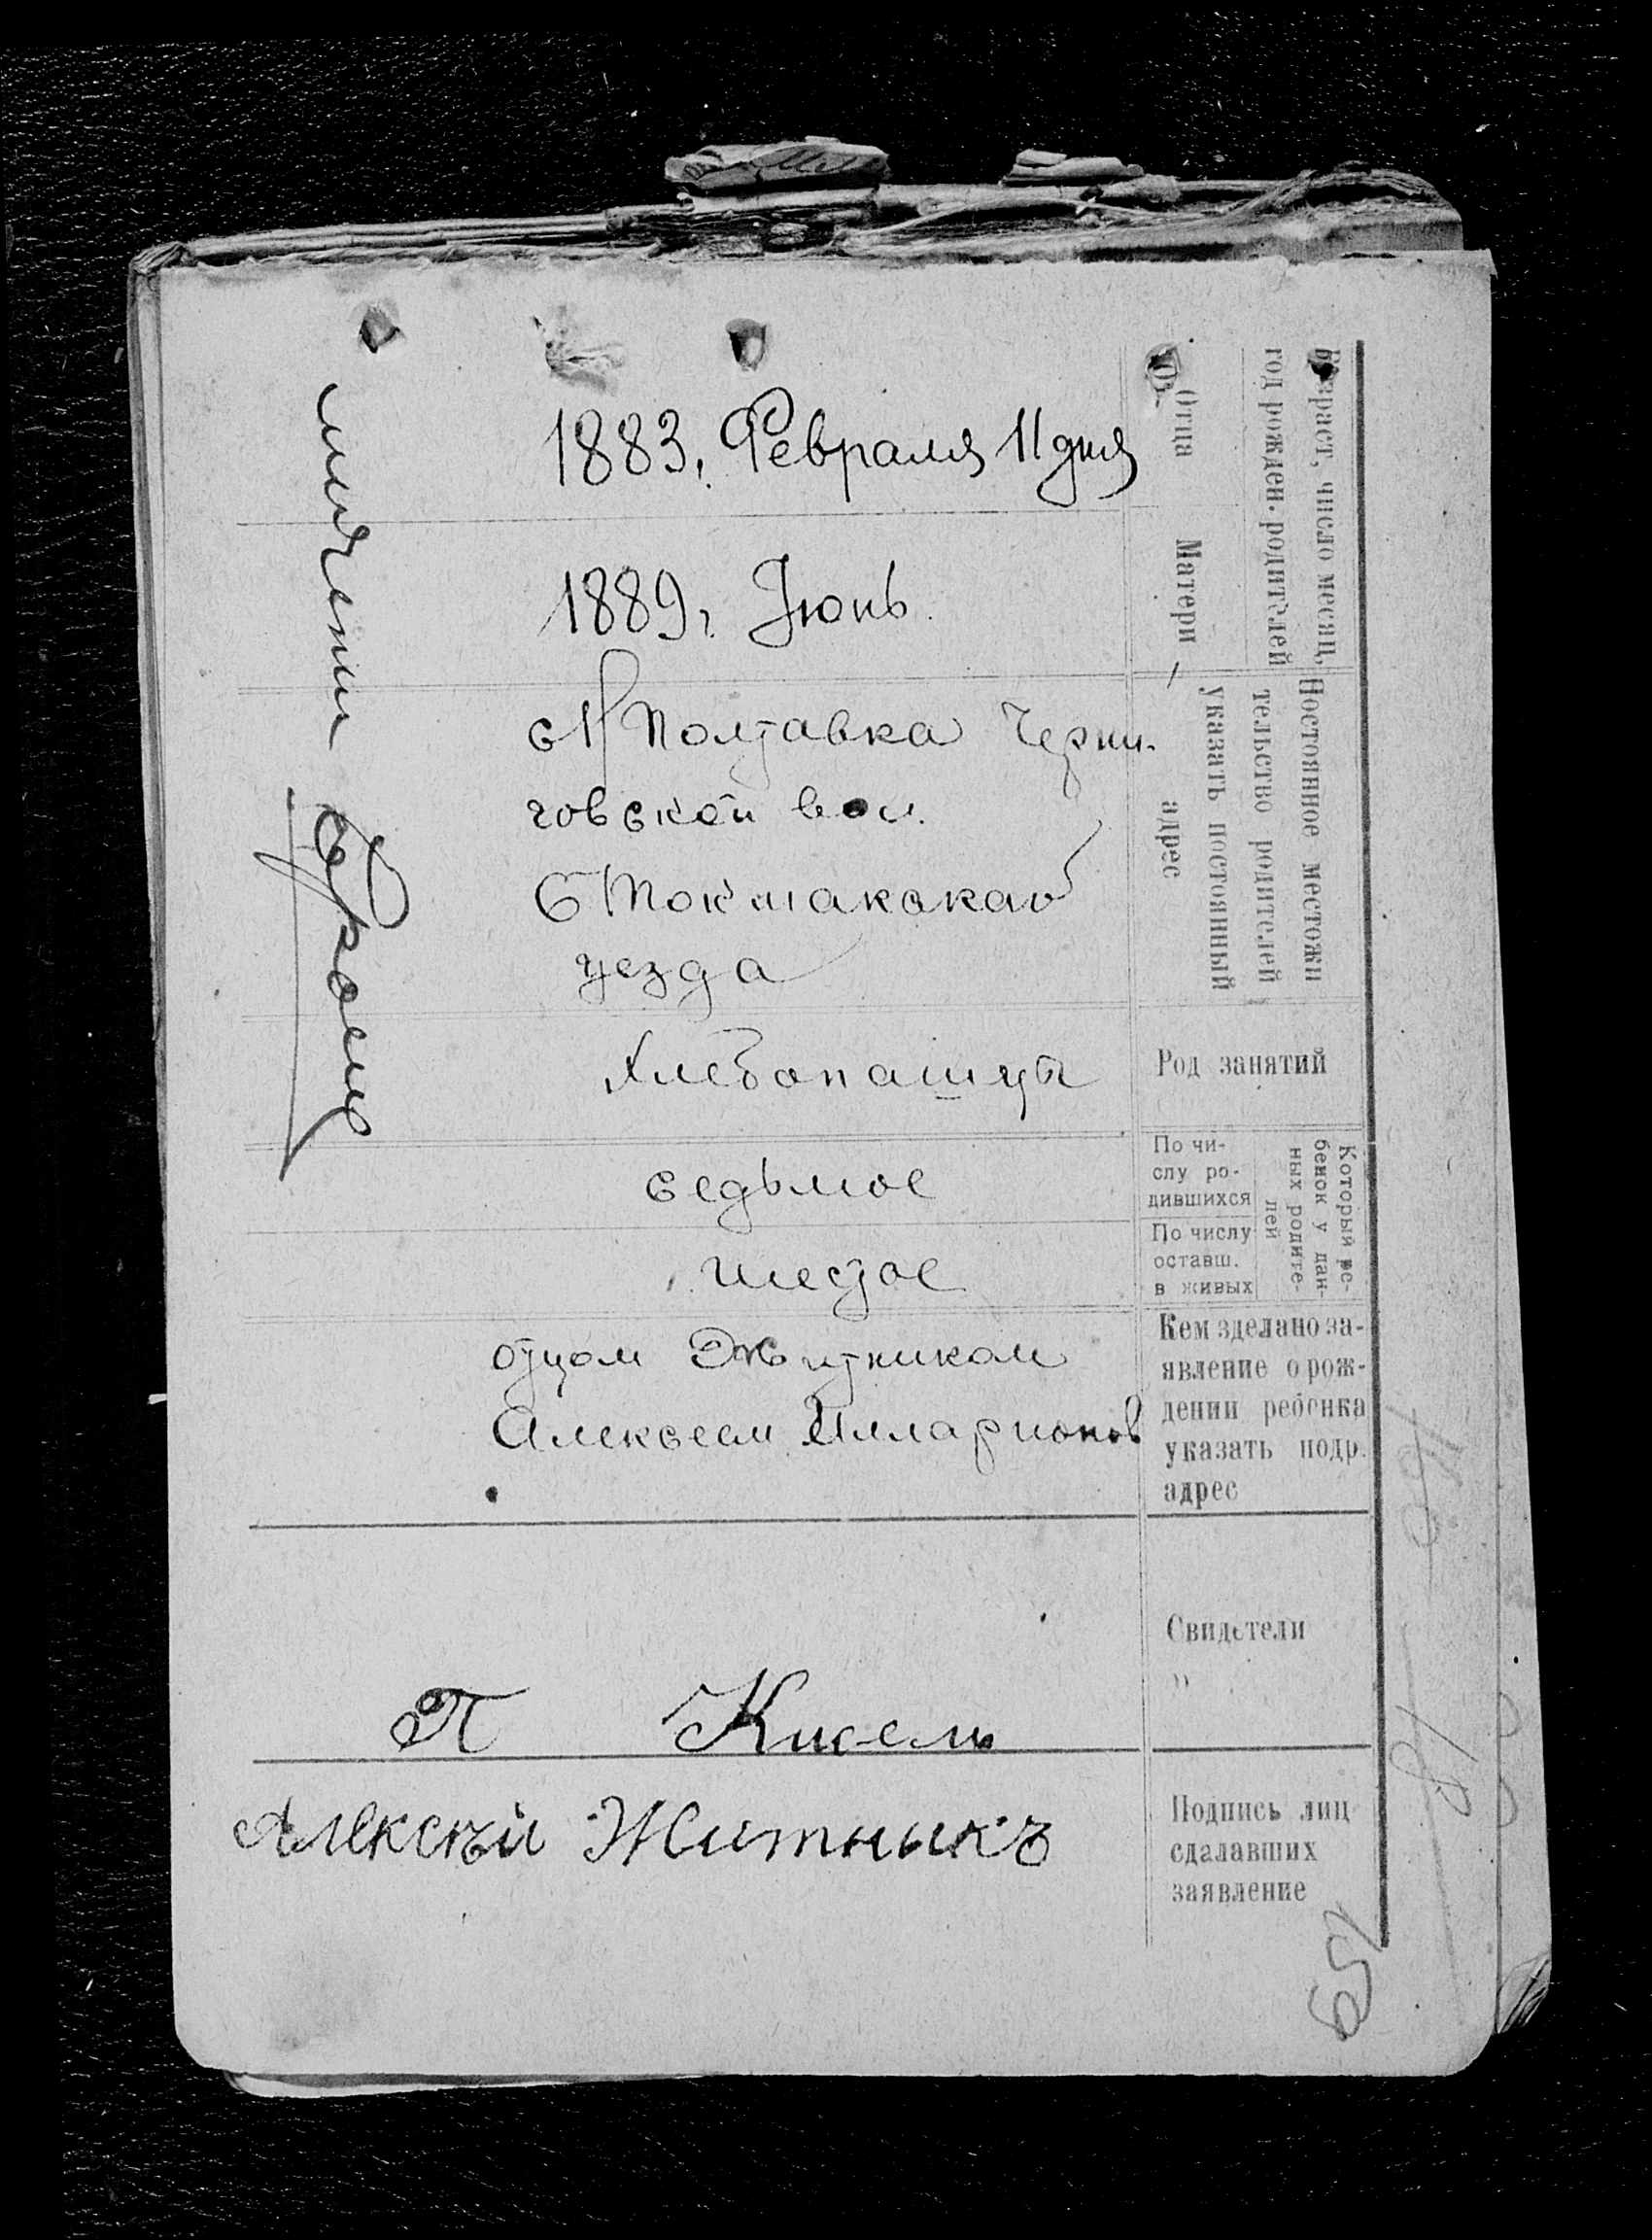 Возраст, число месяц,
год рожден. родителей
Отца
1883, Февраля 11 дня
Матери
1889, Июнь
Постоянное местожи
тельство родителей
указать постоянный
адрес
Полтавка Черни-
говской вол.
Б Токмакскаго
уезда
Род занятий
Хлебопашцы
Который ре-
бенок у дан-
ных родите-
лей
По чи-
слу ро-
дившихся
седьмое
По числу
оставш.
в живых
шестое
Кем зделано за-
явление о рож-
дении ребенка
указать подр.
адрес
отцом Житником
Алексеем Илларионов
Свидетели
"
П Кисель
Подпись лиц
сдалавших
заявление
Алексѣй Житныкъ
659